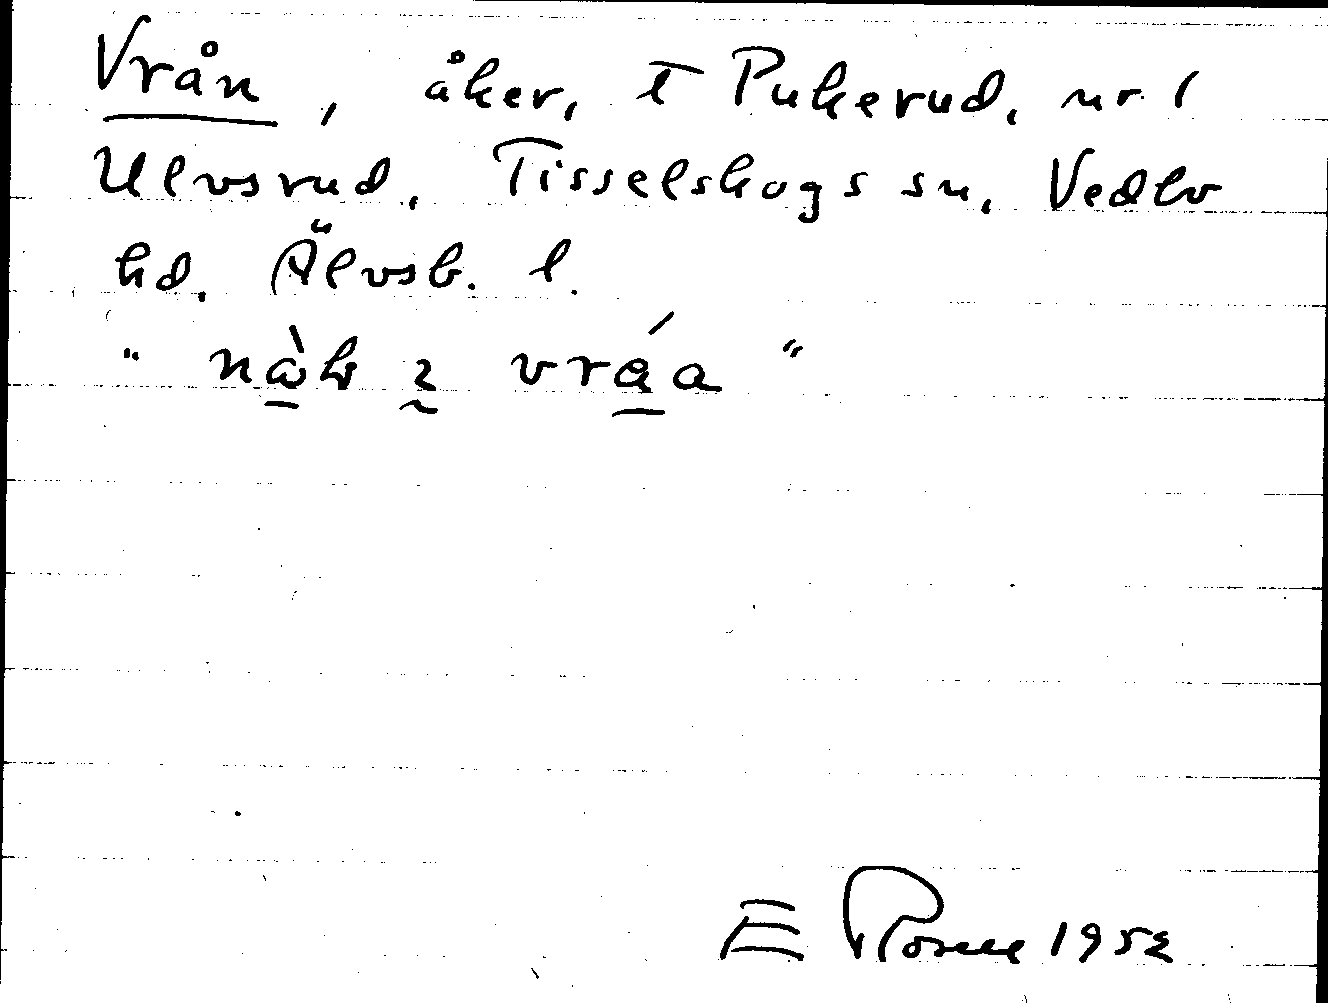 Vrån, åker, t Pukerud, nr 1
Ulvsrud, Tisselskogs sn, Vedbo
hd. Älvsb. l.
" vráa "
E 1952